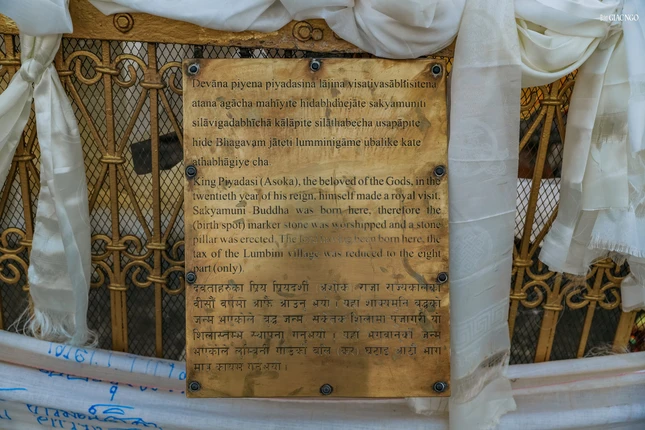 GIACNGO
Devāna piyena piyadasina lājina visativasābhisitena
atana āgācha mahīyite hidabhdhejāte sakyamuniti
silāvigadabhīchā kālāpite silāthabecha usapāpite
hide Bhagavaṃ jāteti lumminigāme ubalike kate
athabhāgiye cha
King Piyadasi (Asoka), the beloved of the Gods, in the
twentieth year of his reign, himself made a royal visit,
Sakyamuni Buddha was born here, therefore the
(birth spot) marker stone was worshipped and a stone
pillar was erected. The lord having been born here, the
tax of the Lumbini village was reduced to the eight
part (only).
देवताहरुका प्रिय प्रियदर्शी अशोक राजा राज्यकालका
वीसौं वर्षमा आफै आउनु भयो । यहाँ शाक्यमुनि बुद्धको
जन्म भएकोले बुद्ध जन्म संकेतक शिलामा पूजागरी यो
शिलास्तम्भ स्थापना गर्नुभयो । यहाँ भगवानको जन्म
भएकोले लुम्बिनी गाउँको बलि आठौं भाग
मात्र कायम गर्नुभयो ।